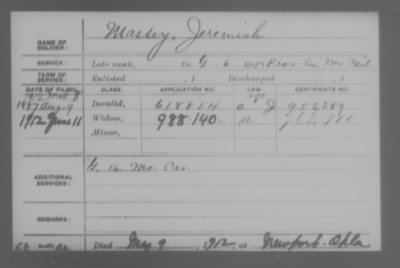 NAME OF SOLDIER: Massey, Jeremiah
SERVICE: Late rank, Co. G, 6 Prov. En. Mo. Mil.
TERM OF SERVICE: Enlisted , 1 Discharged , 1
DATE OF FILING. CLASS. APPLICATION NO. LAW. CERTIFICATE NO.
1887 Aug. 9 Invalid, 618854 952289
1912 June 11 Widow, 988.140. a
Minor,
ADDITIONAL SERVICES: G. 16. Mo. Cav.
REMARKS:
Died May 9, 1912, at Newport. Okla